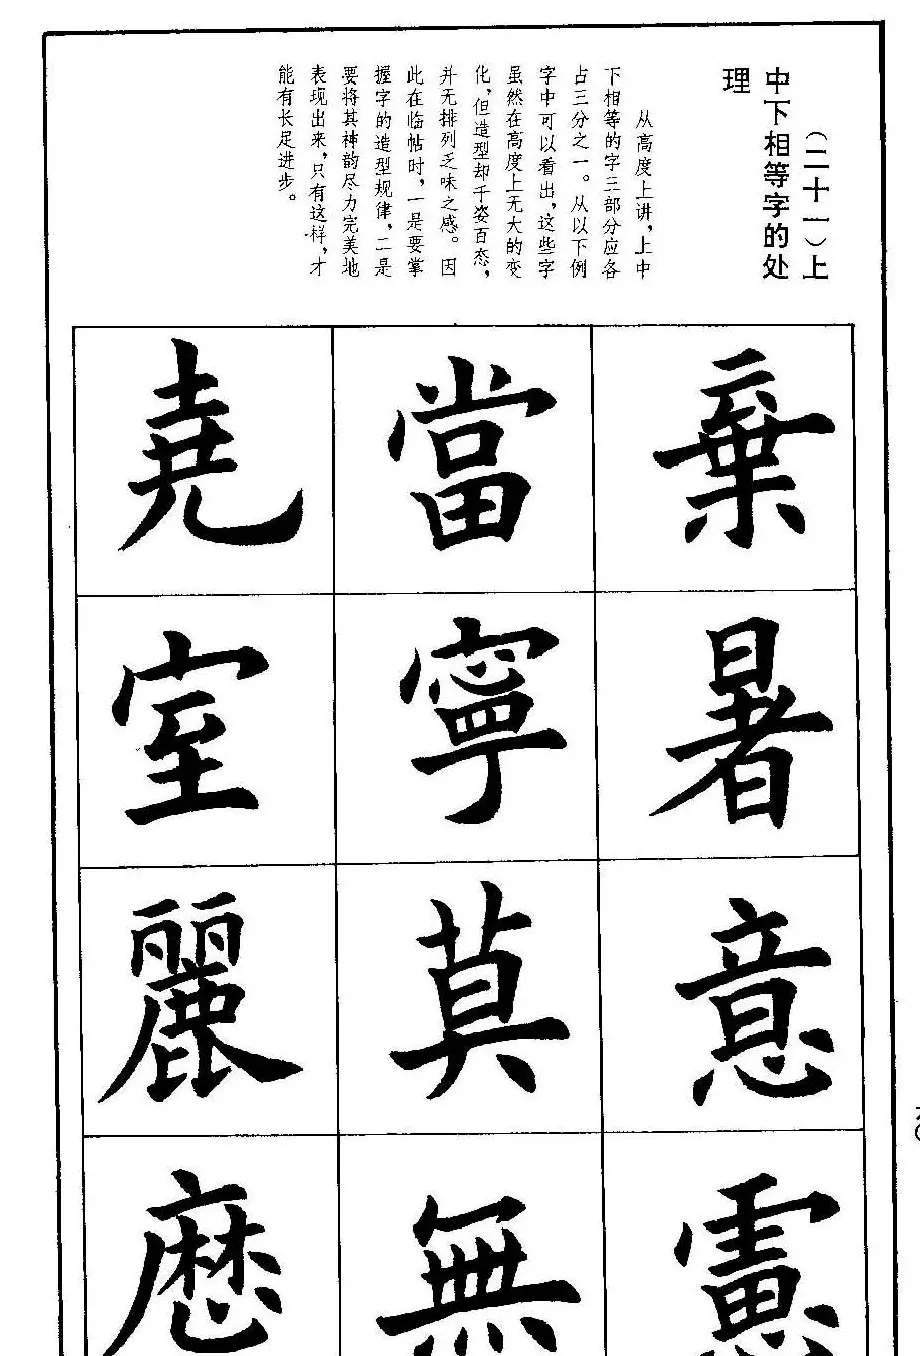 （二十一）上
中下相等字的处
理
从高度上讲，上中
下相等的字三部分应各
占三分之一。从以下例
字中可以看出，这些字
虽然在高度上无大的变
化，但造型却千姿百态，
并无排列乏味之感。因
此在临帖时，一是要掌
握字的造型规律，二是
要将其神韵尽力完美地
表现出来，只有这样，才
能有长足进步。
棄
暑
意
當
寧
莫
無
堯
室
麗